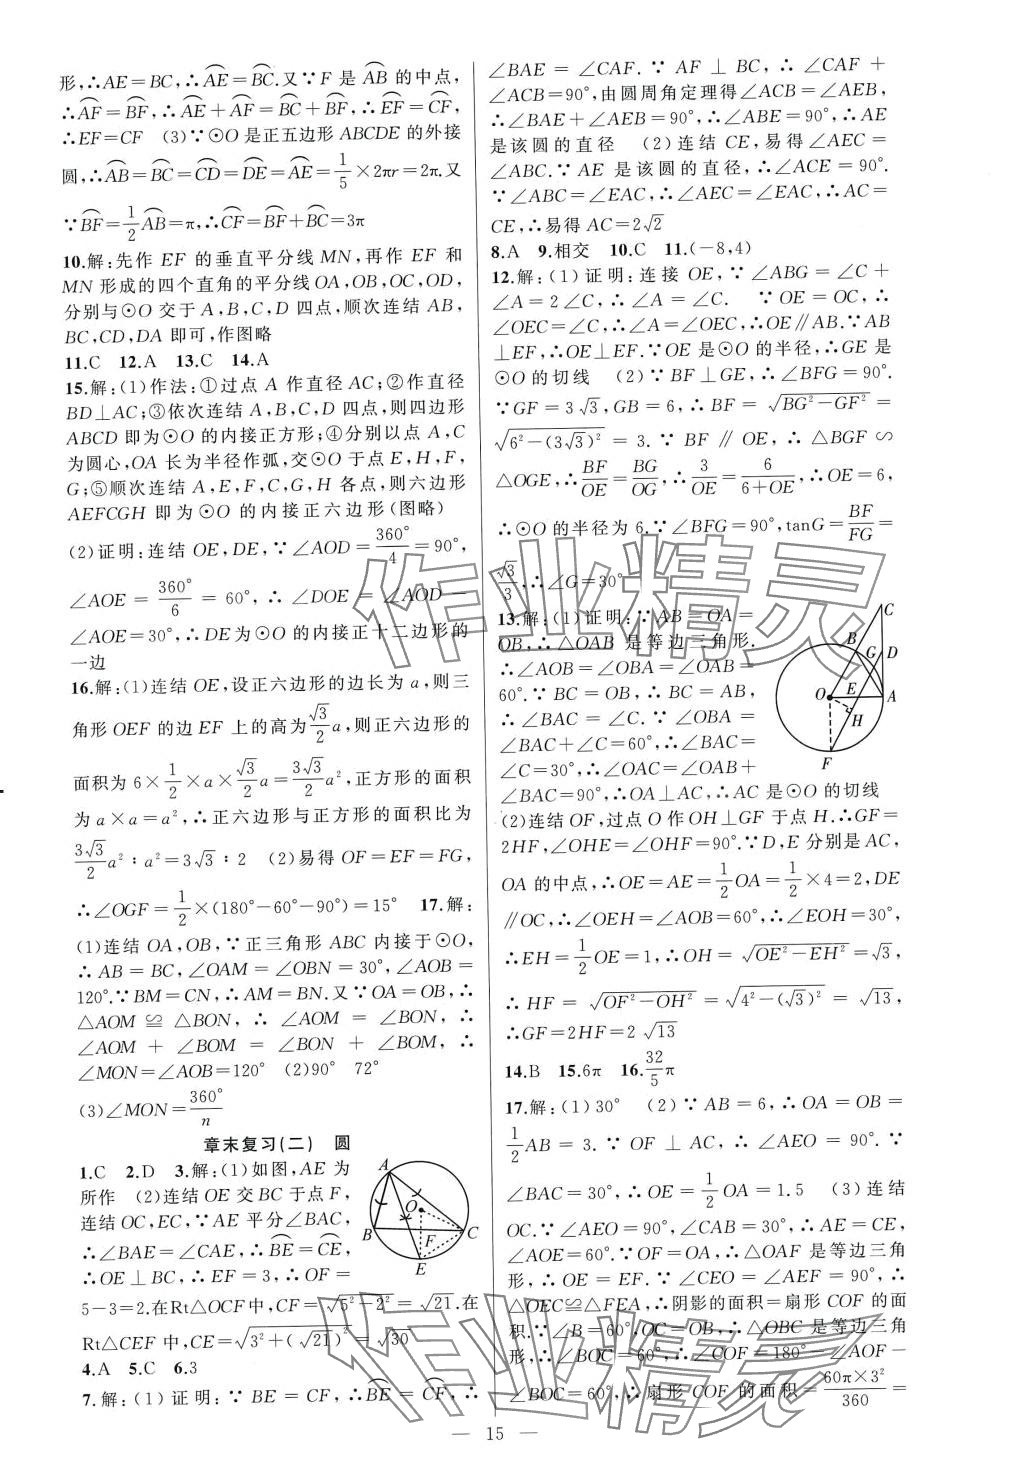 形,∴AE=BC,∴AE⌒=BC⌒.又∵F 是 AB⌒ 的中点,
∴AF⌒=BF⌒,∴AE⌒+AF⌒=BC⌒+BF⌒,∴EF⌒=CF⌒,
∴EF=CF (3)∵⊙O 是正五边形 ABCDE 的外接
圆,∴AB⌒=BC⌒=CD⌒=DE⌒=AE⌒=1/5×2πr=2π.又
∵BF⌒=1/2AB⌒=π,∴CF⌒=BF⌒+BC⌒=3π
10.解:先作 EF 的垂直平分线 MN,再作 EF 和
MN 形成的四个直角的平分线 OA,OB,OC,OD,
分别与⊙O 交于 A,B,C,D 四点,顺次连结 AB,
BC,CD,DA 即可,作图略
11.C 12.A 13.C 14.A
15.解:(1)作法:①过点 A 作直径 AC;②作直径
BD⊥AC;③依次连结 A,B,C,D 四点,则四边形
ABCD 即为⊙O 的内接正方形;④分别以点 A,C
为圆心,OA 长为半径作弧,交⊙O 于点 E,H,F,
G;⑤顺次连结 A,E,F,C,G,H 各点,则六边形
AEFCGH 即为⊙O 的内接正六边形(图略)
(2)证明:连结 OE,DE,∵∠AOD=360°/4=90°,
∠AOE=360°/6=60°,∴∠DOE=∠AOD−
∠AOE=30°,∴DE 为⊙O 的内接正十二边形的
一边
16.解:(1)连结 OE,设正六边形的边长为 a,则三
角形 OEF 的边 EF 上的高为√3/2 a,则正六边形的
面积为 6×1/2×a×√3/2 a=3√3/2 a²,正方形的面积
为 a×a=a²,∴正六边形与正方形的面积比为
3√3/2 a²:a²=3√3:2 (2)易得 OF=EF=FG,
∴∠OGF=1/2×(180°−60°−90°)=15° 17.解:
(1)连结 OA,OB,∵正三角形 ABC 内接于⊙O,
∴AB=BC,∠OAM=∠OBN=30°,∠AOB=
120°.∵BM=CN,∴AM=BN.又∵OA=OB,∴
△AOM≌△BON,∴∠AOM=∠BON,∴
∠AOM+∠BOM=∠BON+∠BOM,∴
∠MON=∠AOB=120° (2)90° 72°
(3)∠MON=360°/n
章末复习(二) 圆
1.C 2.D 3.解:(1)如图,AE 为
所作 (2)连结 OE 交 BC 于点 F,
连结 OC,EC,∵AE 平分∠BAC,
∴∠BAE=∠CAE,∴BE⌒=CE⌒,
∴OE⊥BC,∴EF=3,∴OF=
5−3=2.在Rt△OCF中,CF=√(5²−2²)=√21.在
Rt△CEF 中,CE=√(3²+(√21)²)=√30
A
O
B
F
C
E
4.A 5.C 6.3
7.解:(1)证明:∵BE=CF,∴BE⌒=CF⌒,∴
∠BAE=∠CAF.∵AF⊥BC,∴∠CAF+
∠ACB=90°,由圆周角定理得∠ACB=∠AEB,
∴∠BAE+∠AEB=90°,∴∠ABE=90°,∴AE
是该圆的直径 (2)连结 CE,易得∠AEC=
∠ABC.∵AE 是该圆的直径,∴∠ACE=90°.
∵∠ABC=∠EAC,∴∠AEC=∠EAC,∴AC=
CE,∴易得 AC=2√2
8.A 9.相交 10.C 11.(−8,4)
12.解:(1)证明:连接 OE,∵∠ABG=∠C+
∠A=2∠C,∴∠A=∠C. ∵OE=OC,∴
∠OEC=∠C,∴∠A=∠OEC,∴OE∥AB.∵AB
⊥EF,∴OE⊥EF.∵OE 是⊙O 的半径,∴GE 是
⊙O 的切线 (2)∵BF⊥GE,∴∠BFG=90°.
∵GF=3√3,GB=6,∴BF=√(BG²−GF²)=
√(6²−(3√3)²)=3.∵BF∥OE,∴△BGF∽
△OGE,∴BF/OE=BG/OG,∴3/OE=6/(6+OE),∴OE=6,
∴⊙O 的半径为 6.∵∠BFG=90°,tanG=BF/FG=
√3/3,∴∠G=30°
13.解:(1)证明:∵AB=OA=
OB,∴△OAB 是等边三角形.
∴∠AOB=∠OBA=∠OAB=
60°.∵BC=OB,∴BC=AB,
∴∠BAC=∠C.∵∠OBA=
∠BAC+∠C=60°,∴∠BAC=
∠C=30°,∴∠OAC=∠OAB+
∠BAC=90°,∴OA⊥AC,∴AC 是⊙O 的切线
C
B
G
D
O
E
A
H
F
(2)连结 OF,过点 O 作 OH⊥GF 于点 H.∴GF=
2HF,∠OHE=∠OHF=90°.∵D,E 分别是 AC,
OA 的中点,∴OE=AE=1/2OA=1/2×4=2,DE
∥OC,∴∠OEH=∠AOB=60°,∴∠EOH=30°,
∴EH=1/2OE=1,∴OH=√(OE²−EH²)=√3,
∴HF=√(OF²−OH²)=√(4²−(√3)²)=√13,
∴GF=2HF=2√13
14.B 15.6π 16.32/5π
17.解:(1)30° (2)∵AB=6,∴OA=OB=
1/2AB=3.∵OF⊥AC,∴∠AEO=90°.∵
∠BAC=30°,∴OE=1/2OA=1.5 (3)连结
OC.∵∠AEO=90°,∠CAB=30°,∴AE=CE,
∠AOE=60°.∵OF=OA,∴△OAF 是等边三角
形,∴OE=EF.∵∠CEO=∠AEF=90°,∴
△OEC≌△FEA,∴阴影的面积=扇形 COF 的面
积.∵∠B=60°,OC=OB,∴△OBC 是等边三角
形,∴∠BOC=60°,∴∠COF=180°−∠AOF−
∠BOC=60°,∴扇形 COF 的面积=60π×3²/360=
— 15 —
作业精灵
作业精灵